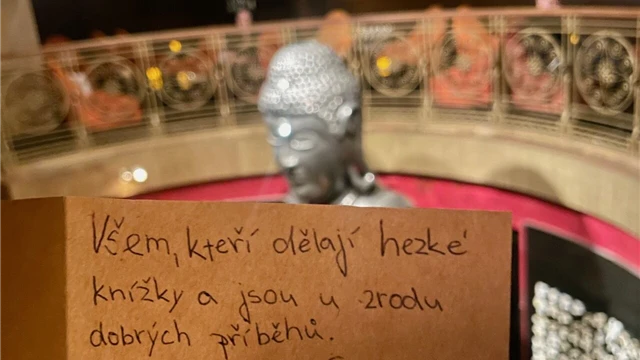 Všem, kteří dělají hezké
knížky a jsou u zrodu
dobrých příběhů.